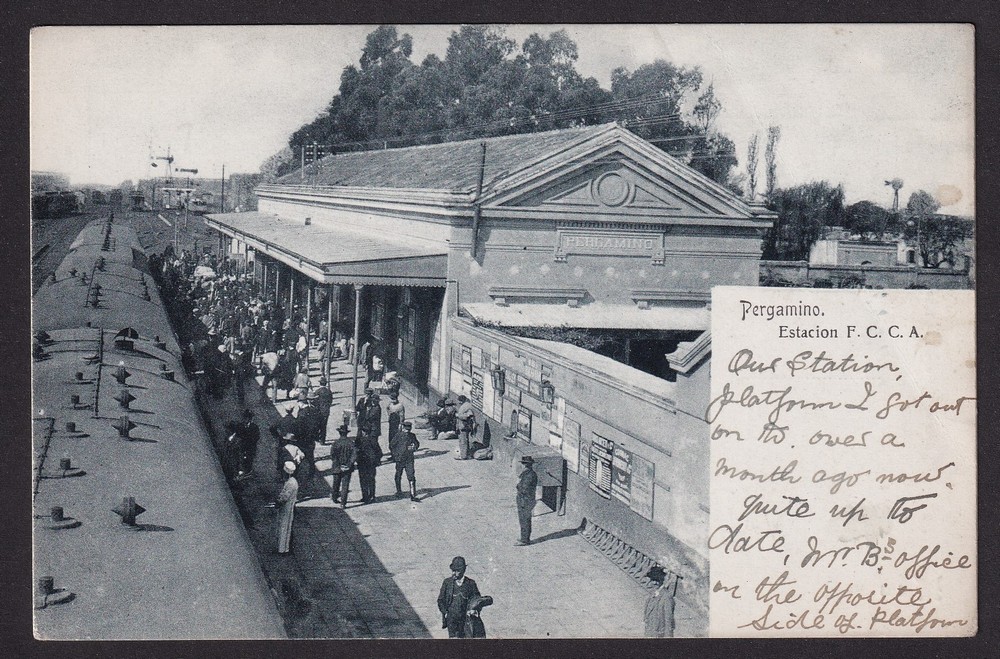 PERGAMINO
Pergamino.
Estacion F. C. C. A.
Our Station,
platform I got out
on to. over a
month ago now.
quite up to
date, Mr. B's office
on the opposite
side of platform